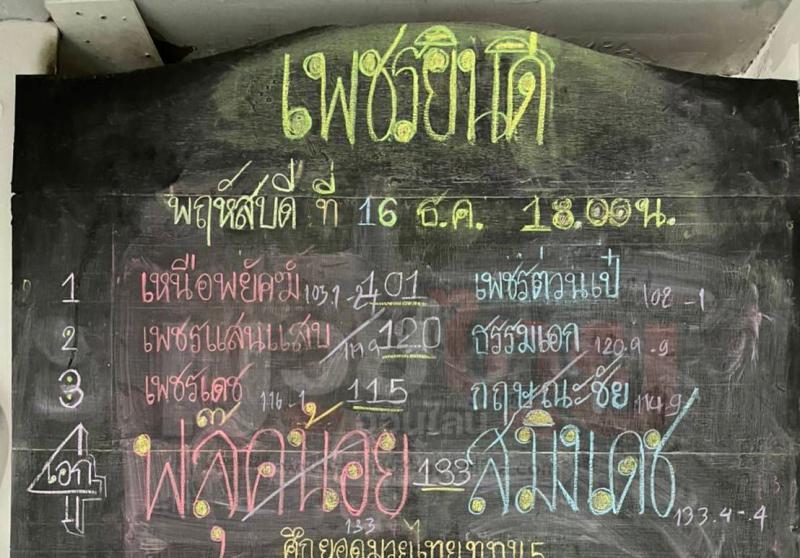 เพชรยินดี
พฤหัสบดี ที่ 16 ธ.ค. 18.00น.
1 เหนือพยัคฆ์ 101 เพชรต่วนเป๋ 102 -1
2 เพชรแสนแสบ 119 120 ธรรมเอก 120.9 -9
3 เพชรเดช 116 -1 115 กฤษณะชัย 114.9
เอก 133 133.4 -.4
133
ศึกยอดมวยไทย